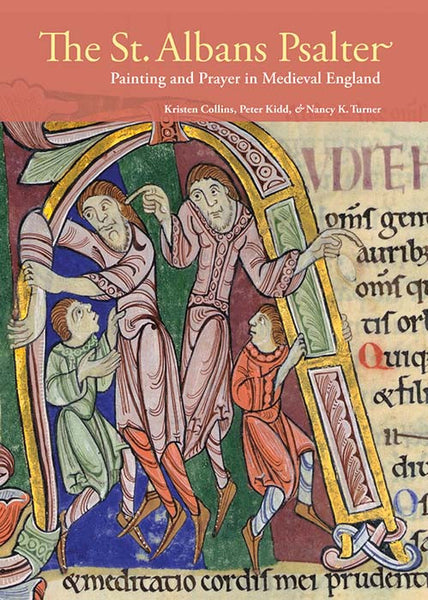 The St. Albans Psalter
Painting and Prayer in Medieval England
Kristen Collins, Peter Kidd, & Nancy K. Turner
UDITE H
om̄s gen
aurib
om̄s qu
tis orb
Quiq
&fili
di
&meditatio cordis mei prudenti